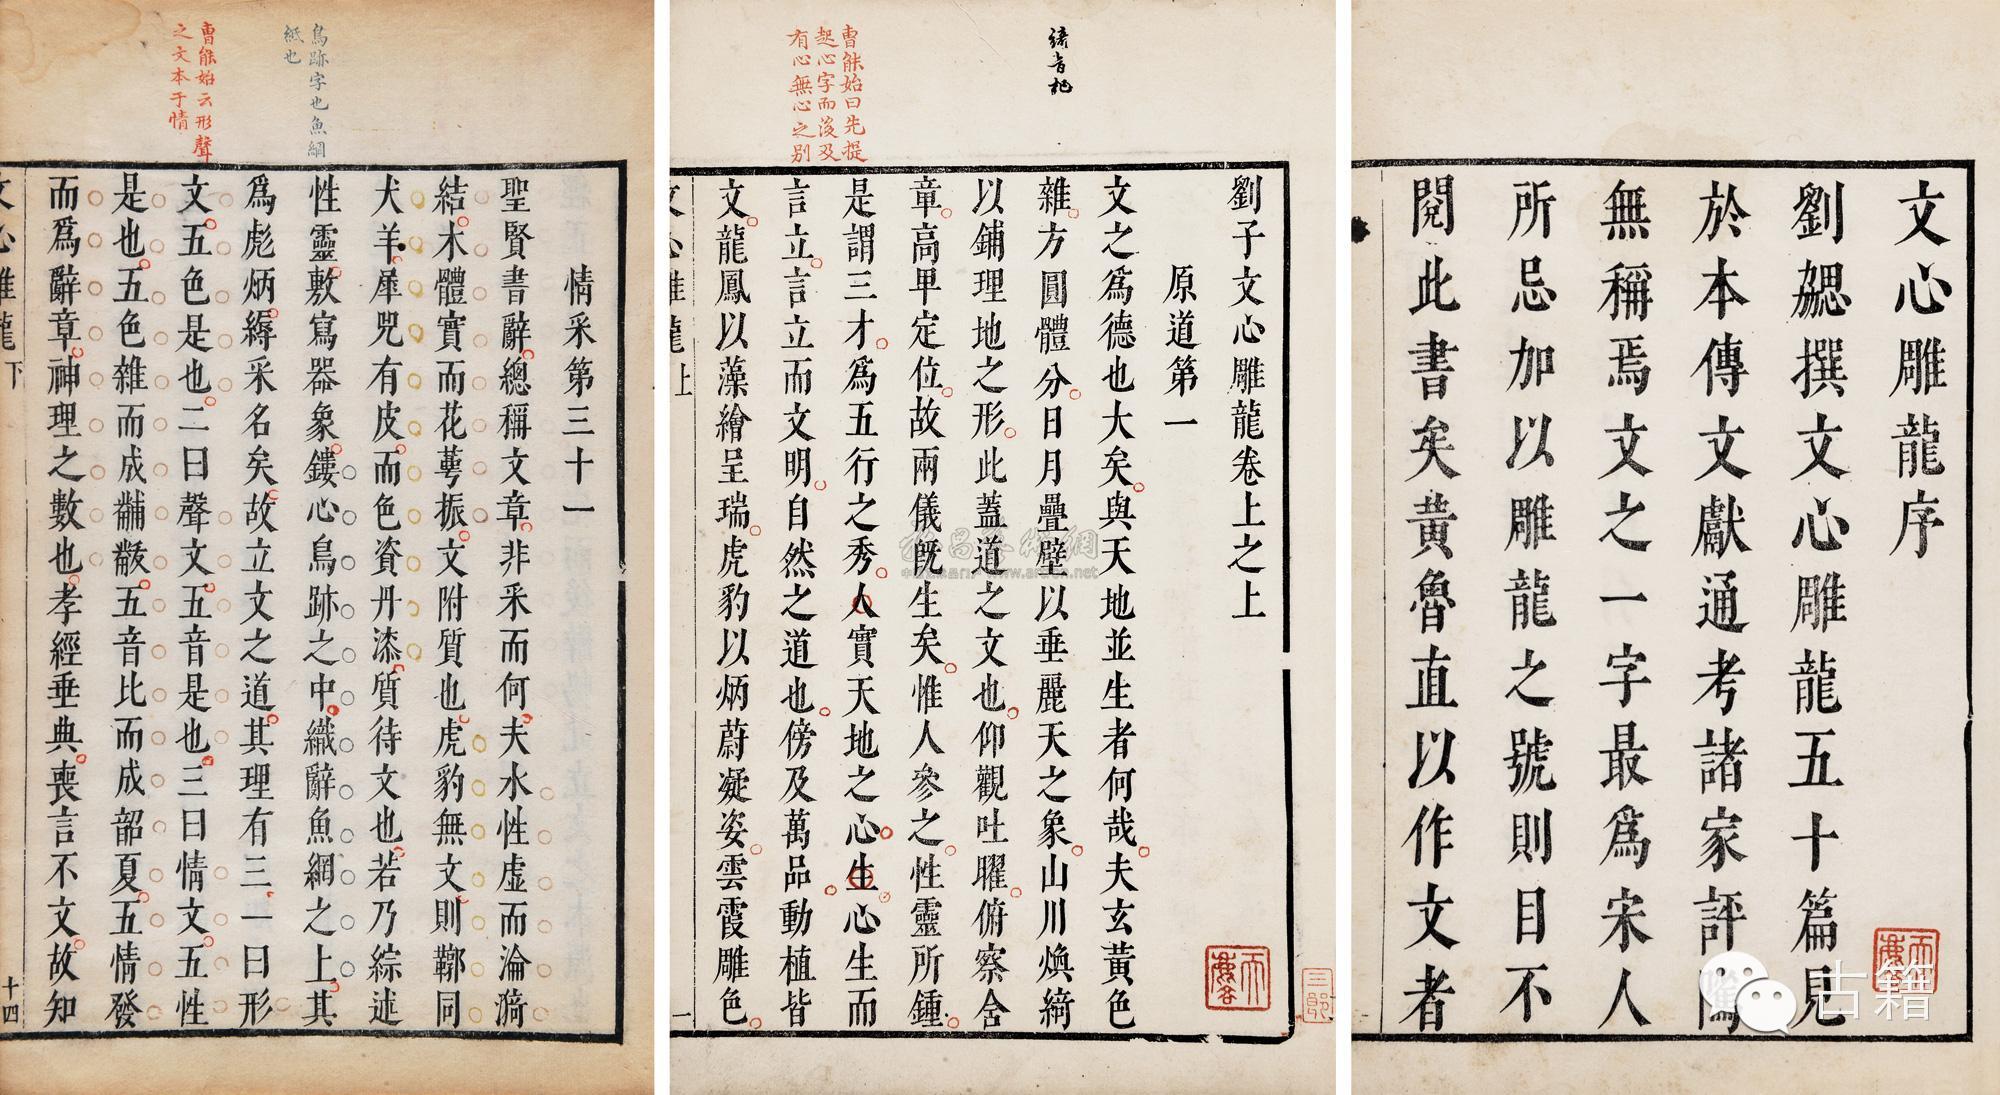 文心雕龍序
劉勰撰文心雕龍五十篇見
於本傳文獻通考諸家評隲
無稱焉文之一字最爲宋人
所忌加以雕龍之號則目不
閱此書矣黄魯直以作文者
古籍
曹能始曰先提
起心字而後及
有心無心之别
劉子文心雕龍卷上之上
原道第一
文之爲德也大矣與天地並生者何哉夫玄黄色
雜方圓體分日月疊壁以垂麗天之象山川煥綺
以鋪理地之形此蓋道之文也仰觀吐曜俯察含
章高卑定位故兩儀既生矣惟人參之性靈所鍾
是謂三才爲五行之秀人實天地之心生心生而
言立言立而文明自然之道也傍及萬品動植皆
文龍鳳以藻繪呈瑞虎豹以炳蔚凝姿雲霞雕色
文心雕龍上
一
鳥跡字也魚網
紙也
曹能始云形聲
之文本于情
情采第三十一
聖賢書辭總稱文章非采而何夫水性虛而淪漪
結木體實而花萼振文附質也虎豹無文則鞹同
犬羊犀兕有皮而色資丹漆質待文也若乃綜述
性靈敷寫器象鏤心鳥跡之中織辭魚網之上其
爲彪炳縟采名矣故立文之道其理有三一曰形
文五色是也二曰聲文五音是也三曰情文五性
是也五色雜而成黼黻五音比而成韶夏五情發
而爲辭章神理之數也孝經垂典喪言不文故知
文心雕龍下
十四